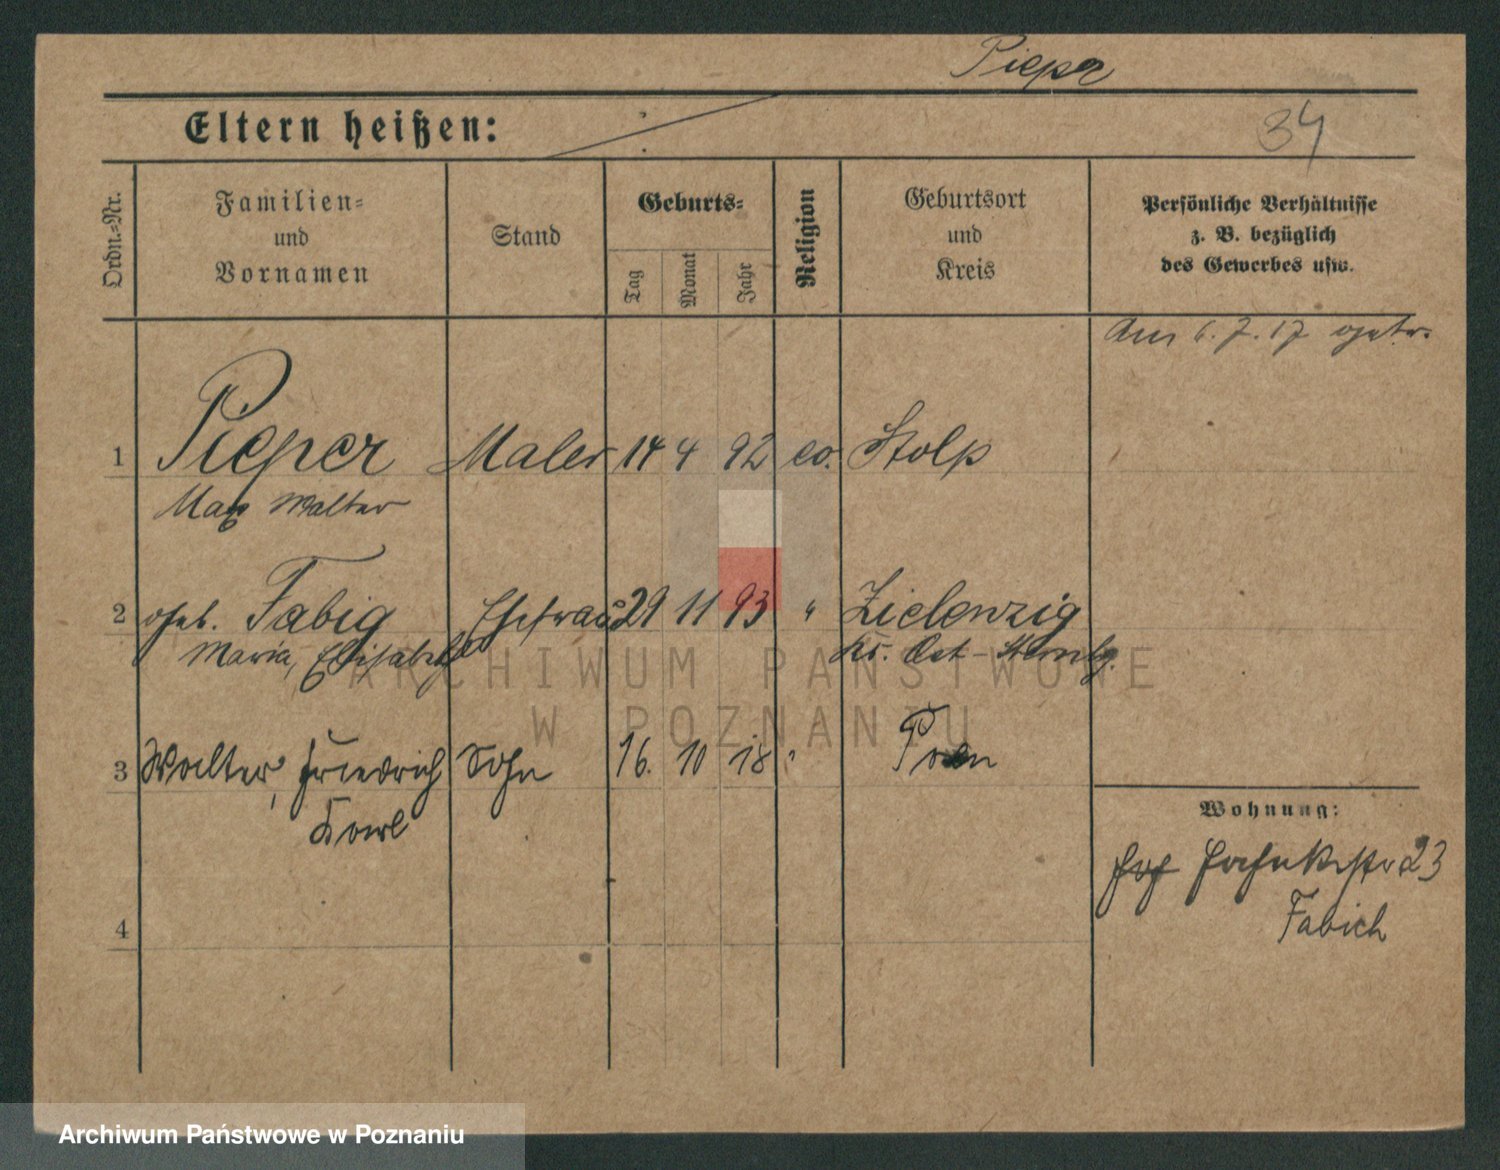 Pieper
Eltern heißen:
34
Ordn.-Nr.
Familien-
und
Vornamen
Stand
Geburts-
Tag
Monat
Jahr
Religion
Geburtsort
und
Kreis
Persönliche Verhältnisse
z. B. bezüglich
des Gewerbes usw.
Am 6. 7. 17 getr.
1 Pieper Maler 14 4 92 ev. Stolp
Max Walter
2 geb. Fabig Ehefrau 29 11 93 " Zielenzig
Maria, Elisabeth Kr. Ost-Sternbg.
3 Walter, Friedrich Sohn 16. 10 18 " Posen
Karl
Wohnung:
23
Fabich
4
ARCHIWUM PAŃSTWOWE
W POZNANIU
Archiwum Państwowe w Poznaniu